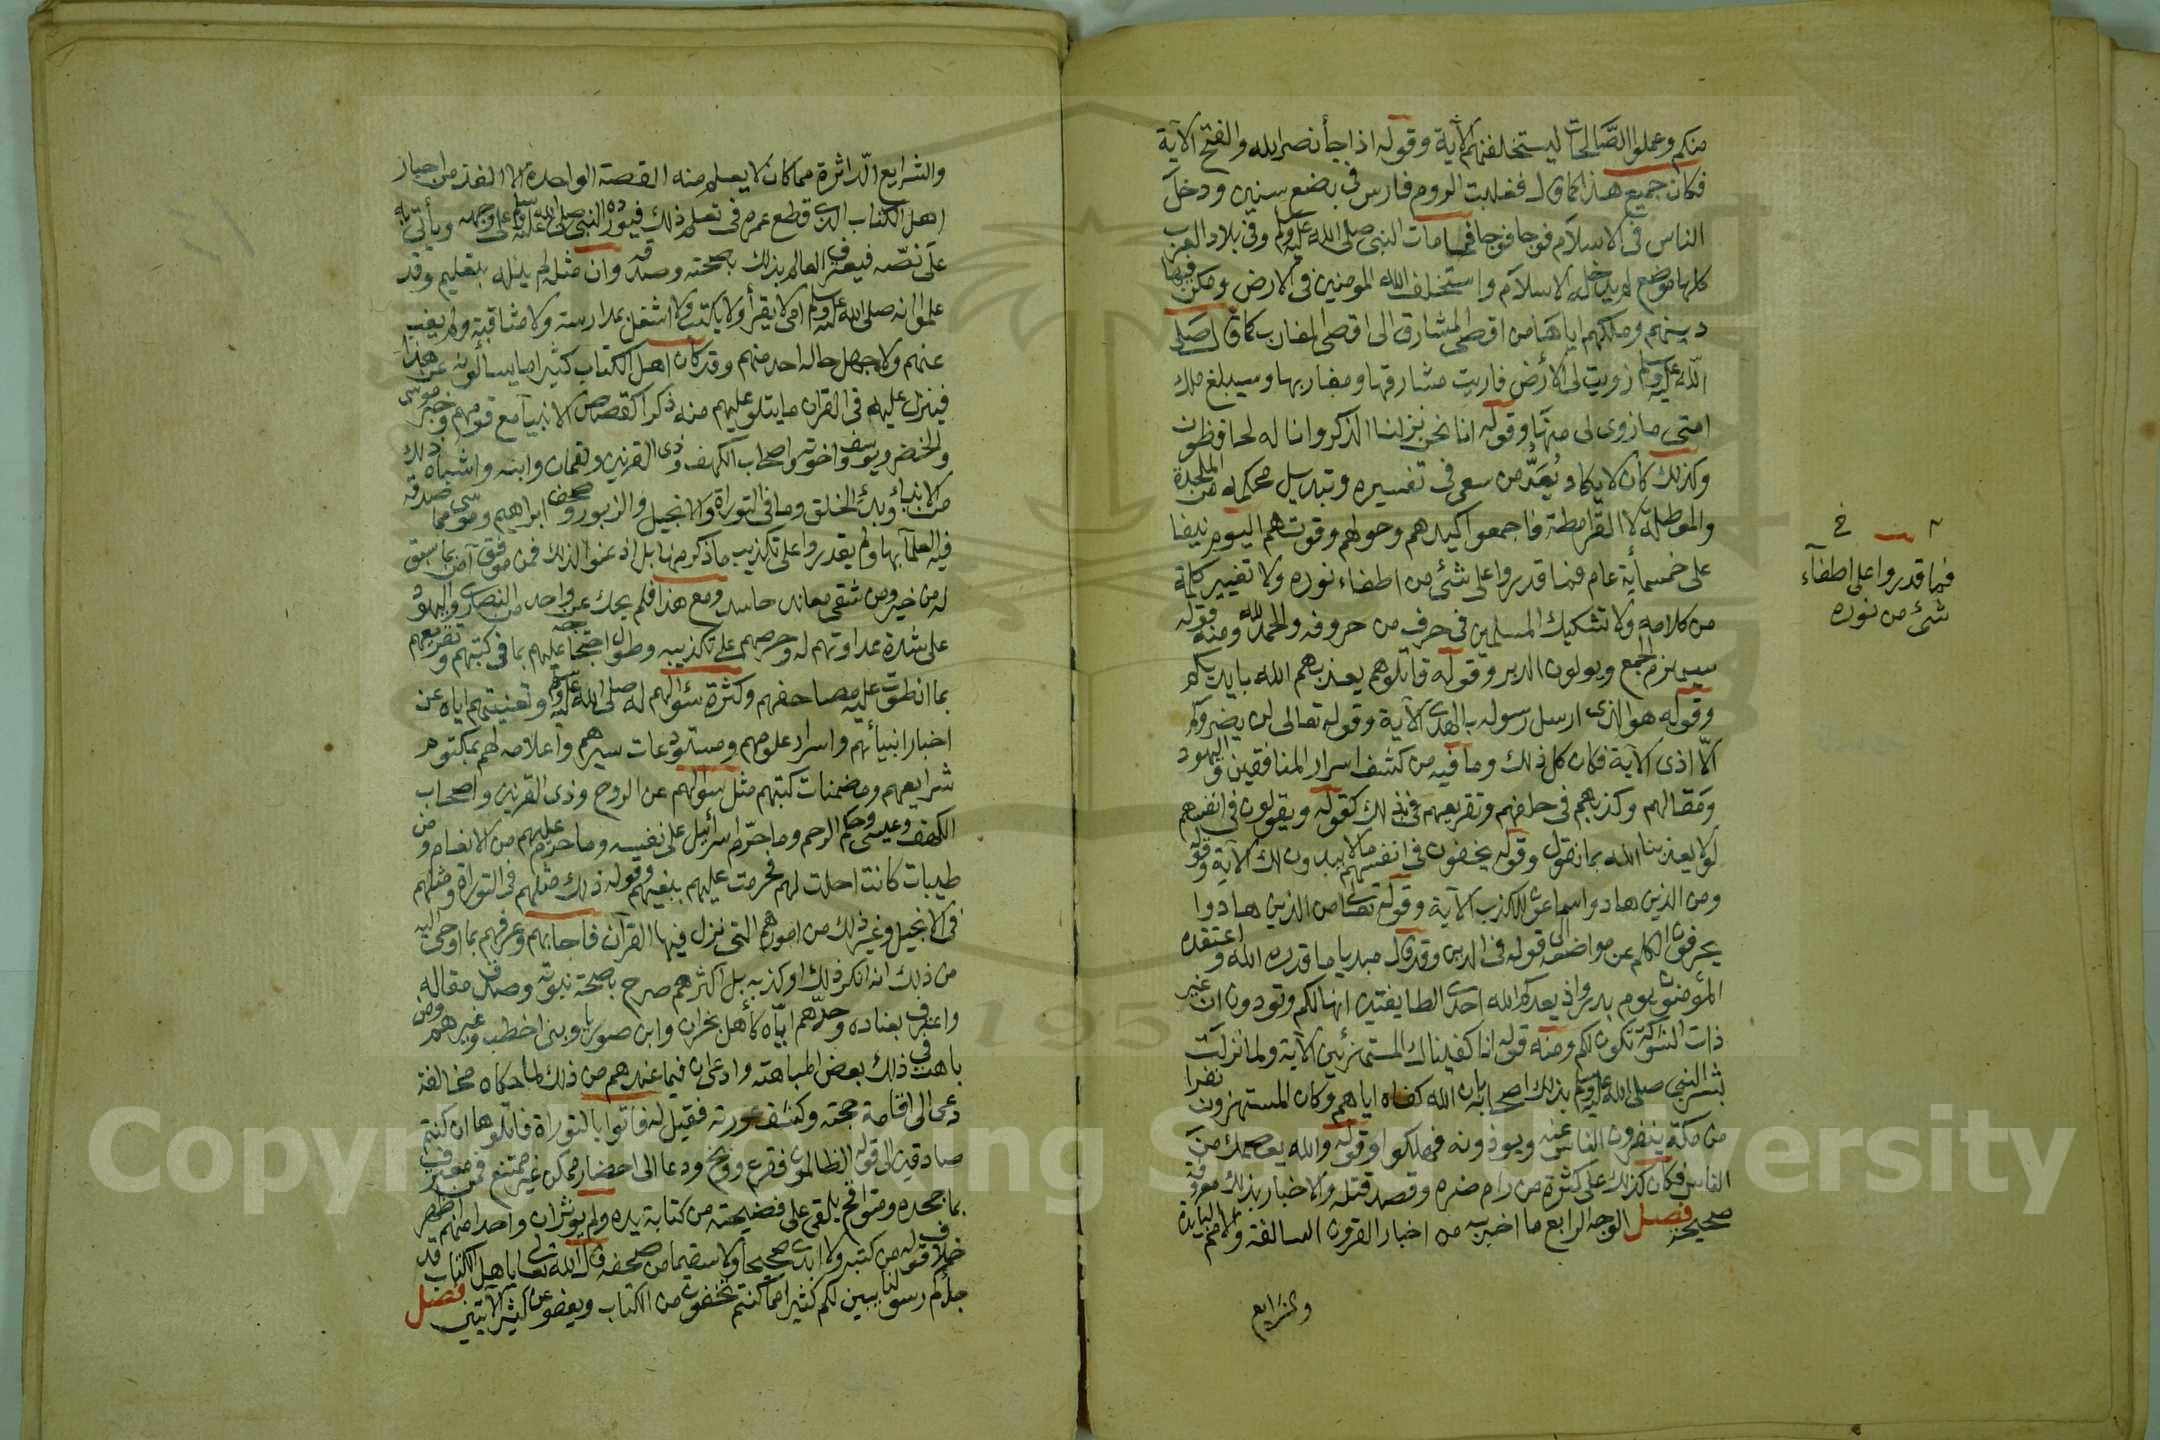 منكم وعملوا الصَّالحات ليستخلفنهم الآية وقوله اذا جأ نصر الله والفتح الآية
فكان جميع هذا كما قال فغلبت الروم فارس في بضع سنين ودخل
الناس في الاسلام فوجا فوجا فما مات النبي صلى الله عليه وسلم وفي بلاد العرب
كلها موضع لم يدخله الاسلام واستخلف الله المومنين في الارض ومكن فيها
دينهم وملكهم اياها من اقصى المشارق الى اقصى المغارب كما قال صلى
الله عليه وسلم زويت لي الأرض فاريت مشارقها ومغاربها وسيبلغ ملك
امتي ما زوى لي منها وقوله انا نحن نزلنا الذكر وانا له لحافظون
وكذلك كان لا يكاد يُعَدُّ من سعى في تفسيره وتبديل محكمه من الملحدة
والمعطلة لا القرامطة فاجمعوا كيدهم وحولهم وقوتهم اليوم نيفا
على خمسمأية عام فما قدروا على شئ من اطفاء نوره ولا تغيير كلمة
من كلامه ولا تشكيك المسلمين في حرف من حروفه والحمد لله ومنه قوله
سيهزم الجمع ويولون الدبر وقوله قاتلوهم يعذبهم الله بايديكم
وقوله هو الذي ارسل رسوله بالهدى الآية وقوله تعالى لن يضروكم
الّا اذى الآية فكان كل ذلك وما فيه من كشف اسرار المنافقين واليهود
ومقالهم وكذبهم في حلفهم وتقريعهم في ذلك كقوله ويقولون في انفسهم
لولا يعذبنا الله بما نقول وقوله يخفون في انفسهم مالا يبدون لك الآية وقوله
ومن الذين هادوا سماعون للكذب الآية وقوله تعالى من الذين هادوا
يحرفون الكلم عن مواضعه الى قوله في الدين وقد قال مبديا ما قدره الله واعتقده
المؤمنون يوم بدر واذ يعدكم الله احدى الطايفتين انها لكم وتودون ان غير
ذات الشوكة تكون لكم ومنه قوله انا كفيناك المستهزئين الآية ولما نزلت
بشر النبي صلى الله عليه وسلم بذلك اصحابه بان الله كفاه اياهم وكان المستهزون نفرا
من مكة ينفرون الناس عنه ويوذونه فهلكوا وقوله والله يعصمك من
الناس فكان كذلك على كثرة من رام ضره وقصد قتله والاخبار بذلك معروفة
صحيحة فصل الوجه الرابع ما اخبر به من اخبار القرون السالفة والامم البايدة
والشرايع
فما قدروا على اطفاء
شئ من نوره
والشرايع الداثرة مما كان لا يعلم منه القصة الواحدة الا الفذ من احبار
اهل الكتاب الذي قطع عمره في تعلم ذلك فيورده النبي صلى الله عليه وسلم على وجهه ويأتي به
على نصّه فيعترف العالم بذلك بصحته وصدقه وان مثله لم ينله بتعليم وقد
علموا انه صلى الله عليه وسلم امي لا يقرأ ولا يكتب ولا اشتغل بمدارسة ولا مثاقبة ولم يغب
عنهم ولا جهل حاله احد منهم وقد كان اهل الكتاب كثيرا ما يسألونه عن هذا
فينزل عليهم في القران ما يتلو عليهم منه ذكرا كقصص الانبيآ مع قومهم وخبر موسى
والخضر ويوسف واخوته واصحاب الكهف وذي القرنين ولقمان وابنه واشباه ذلك
من الانباء وبدئ الخلق وما في التوراة والانجيل والزبور وصحف ابراهيم وموسى مما صدقه
فيه العلمآ بها ولم يقدروا على تكذيب ما ذكر منها بل اذعنوا لذلك فمن موفق آمن بما سبق
له من خير ومن شقي معاند حاسد ومع هذا فلم يحك عن واحد من النصارى واليهود
على شدة عداوتهم له وحرصهم على تكذيبه وطول احتجاجه عليهم بما في كتبهم وتقريعهم
بما انطوت عليه مصاحفهم وكثرة سؤالهم له صلى الله عليه وسلم وتعنيتهم اياه عن
اخبار انبيائهم واسرار علومهم ومستودعات سيرهم واعلامه لهم بمكتوم
شرايعهم ومضمنات كتبهم مثل سؤالهم عن الروح وذي القرنين واصحاب
الكهف وعيسى وحكم الرجم وما حرّم اسرائيل على نفسه وما حرم عليهم من الانعام ومن
طيبات كانت احلت لهم فحرمت عليهم ببغيهم وقوله ذلك مثلهم في التوراة ومثلهم
في الانجيل وغير ذلك من امورهم التي نزل فيها القرآن فاجابهم وعرفهم بما اوحى اليه
من ذلك انه انكر ذلك او كذبه بل اكثرهم صرح بصحة نبوته وصدق مقاله
واعترف بعناده وحسدهم اياه كأهل نجران وابن صوريا وابني اخطب وغيرهم ومن
باهت في ذلك بعض المباهتة وادعى ان فيما عندهم من ذلك لما حكاه مخالفة
دعى الى اقامة حجته وكشف عورته فقيل له فاتوا بالتوراة فاتلوها ان كنتم
صادقين الى قوله الظالمون فقرع ووبخ ودعا الى احضار ممكن غير ممتنع فمن معترف
بما جحده ومتواقح يلقي على فضيحته من كتابة يده ولم يوثر ان واحدا منهم اظهر
خلاف قوله من كتبه ولا ابدى صحيحا ولا سقيما من صحفه قال الله تعالى يا اهل الكتاب قد
جاءكم رسولنا يبين لكم كثيرا مما كنتم تخفون من الكتاب ويعفو عن كثير الآيتين فصل
Copyright © King Saud University
195